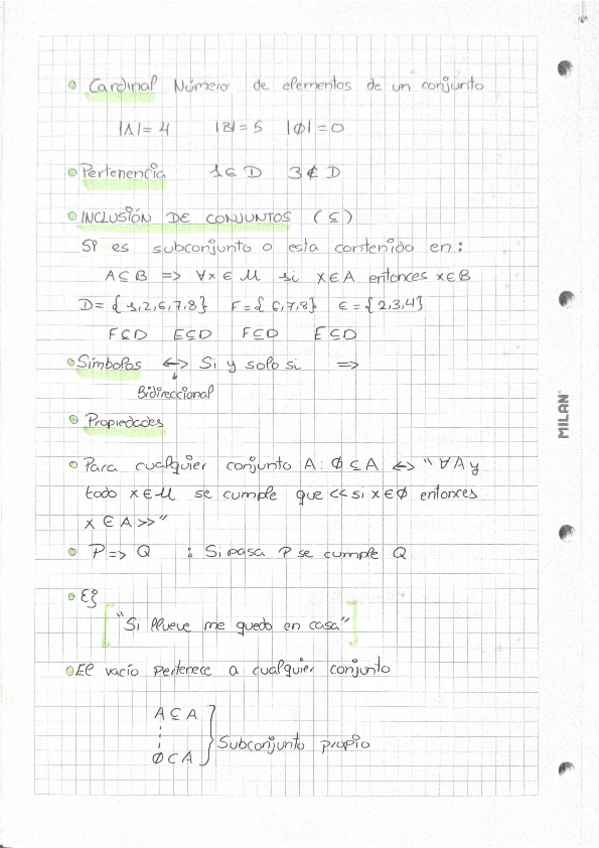 • Cardinal Número de elementos de un conjunto
|A|= 4 |B|= 5 |∅|= 0
• Pertenencia 1 ∈ D 3 ∉ D
• INCLUSIÓN DE CONJUNTOS (⊆)
Si es subconjunto o esta contenido en:
A⊆B => ∀x ∈ U si x∈A entonces x∈B
D= {1,2,6,7,8} F= {6,7,8} E= {2,3,4}
F⊆D E⊆D F⊆D E⊆D
• Simbolos <-> Si y solo si =>
Bidireccional
• Propiedades
• Para cualquier conjunto A: ∅ ⊆ A <-> "∀A y
todo x ∈ U se cumple que <<si x ∈ ∅ entonces
x ∈ A>>"
• P => Q : Si pasa P se cumple Q
• Ej
"Si llueve me quedo en casa"
• El vacío pertenece a cualquier conjunto
A ⊆ A
∅ ⊂ A
Subconjunto propio
MILAN